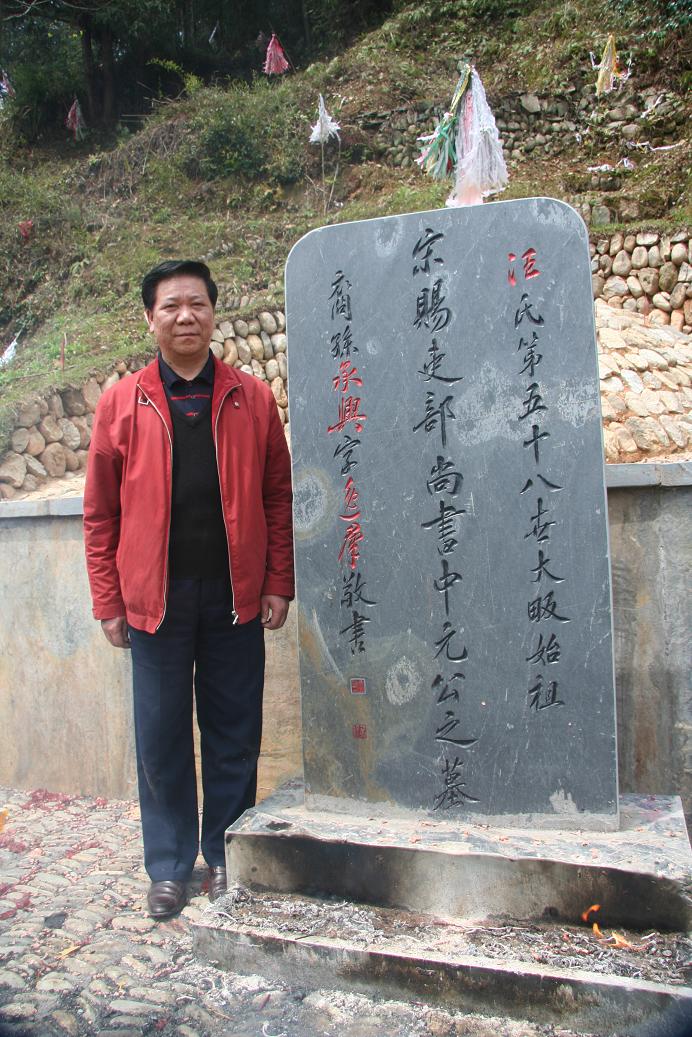 汪氏第五十八世大畈始祖
宋賜吏部尚書中元公之墓
裔孫承興字逸羣敬書